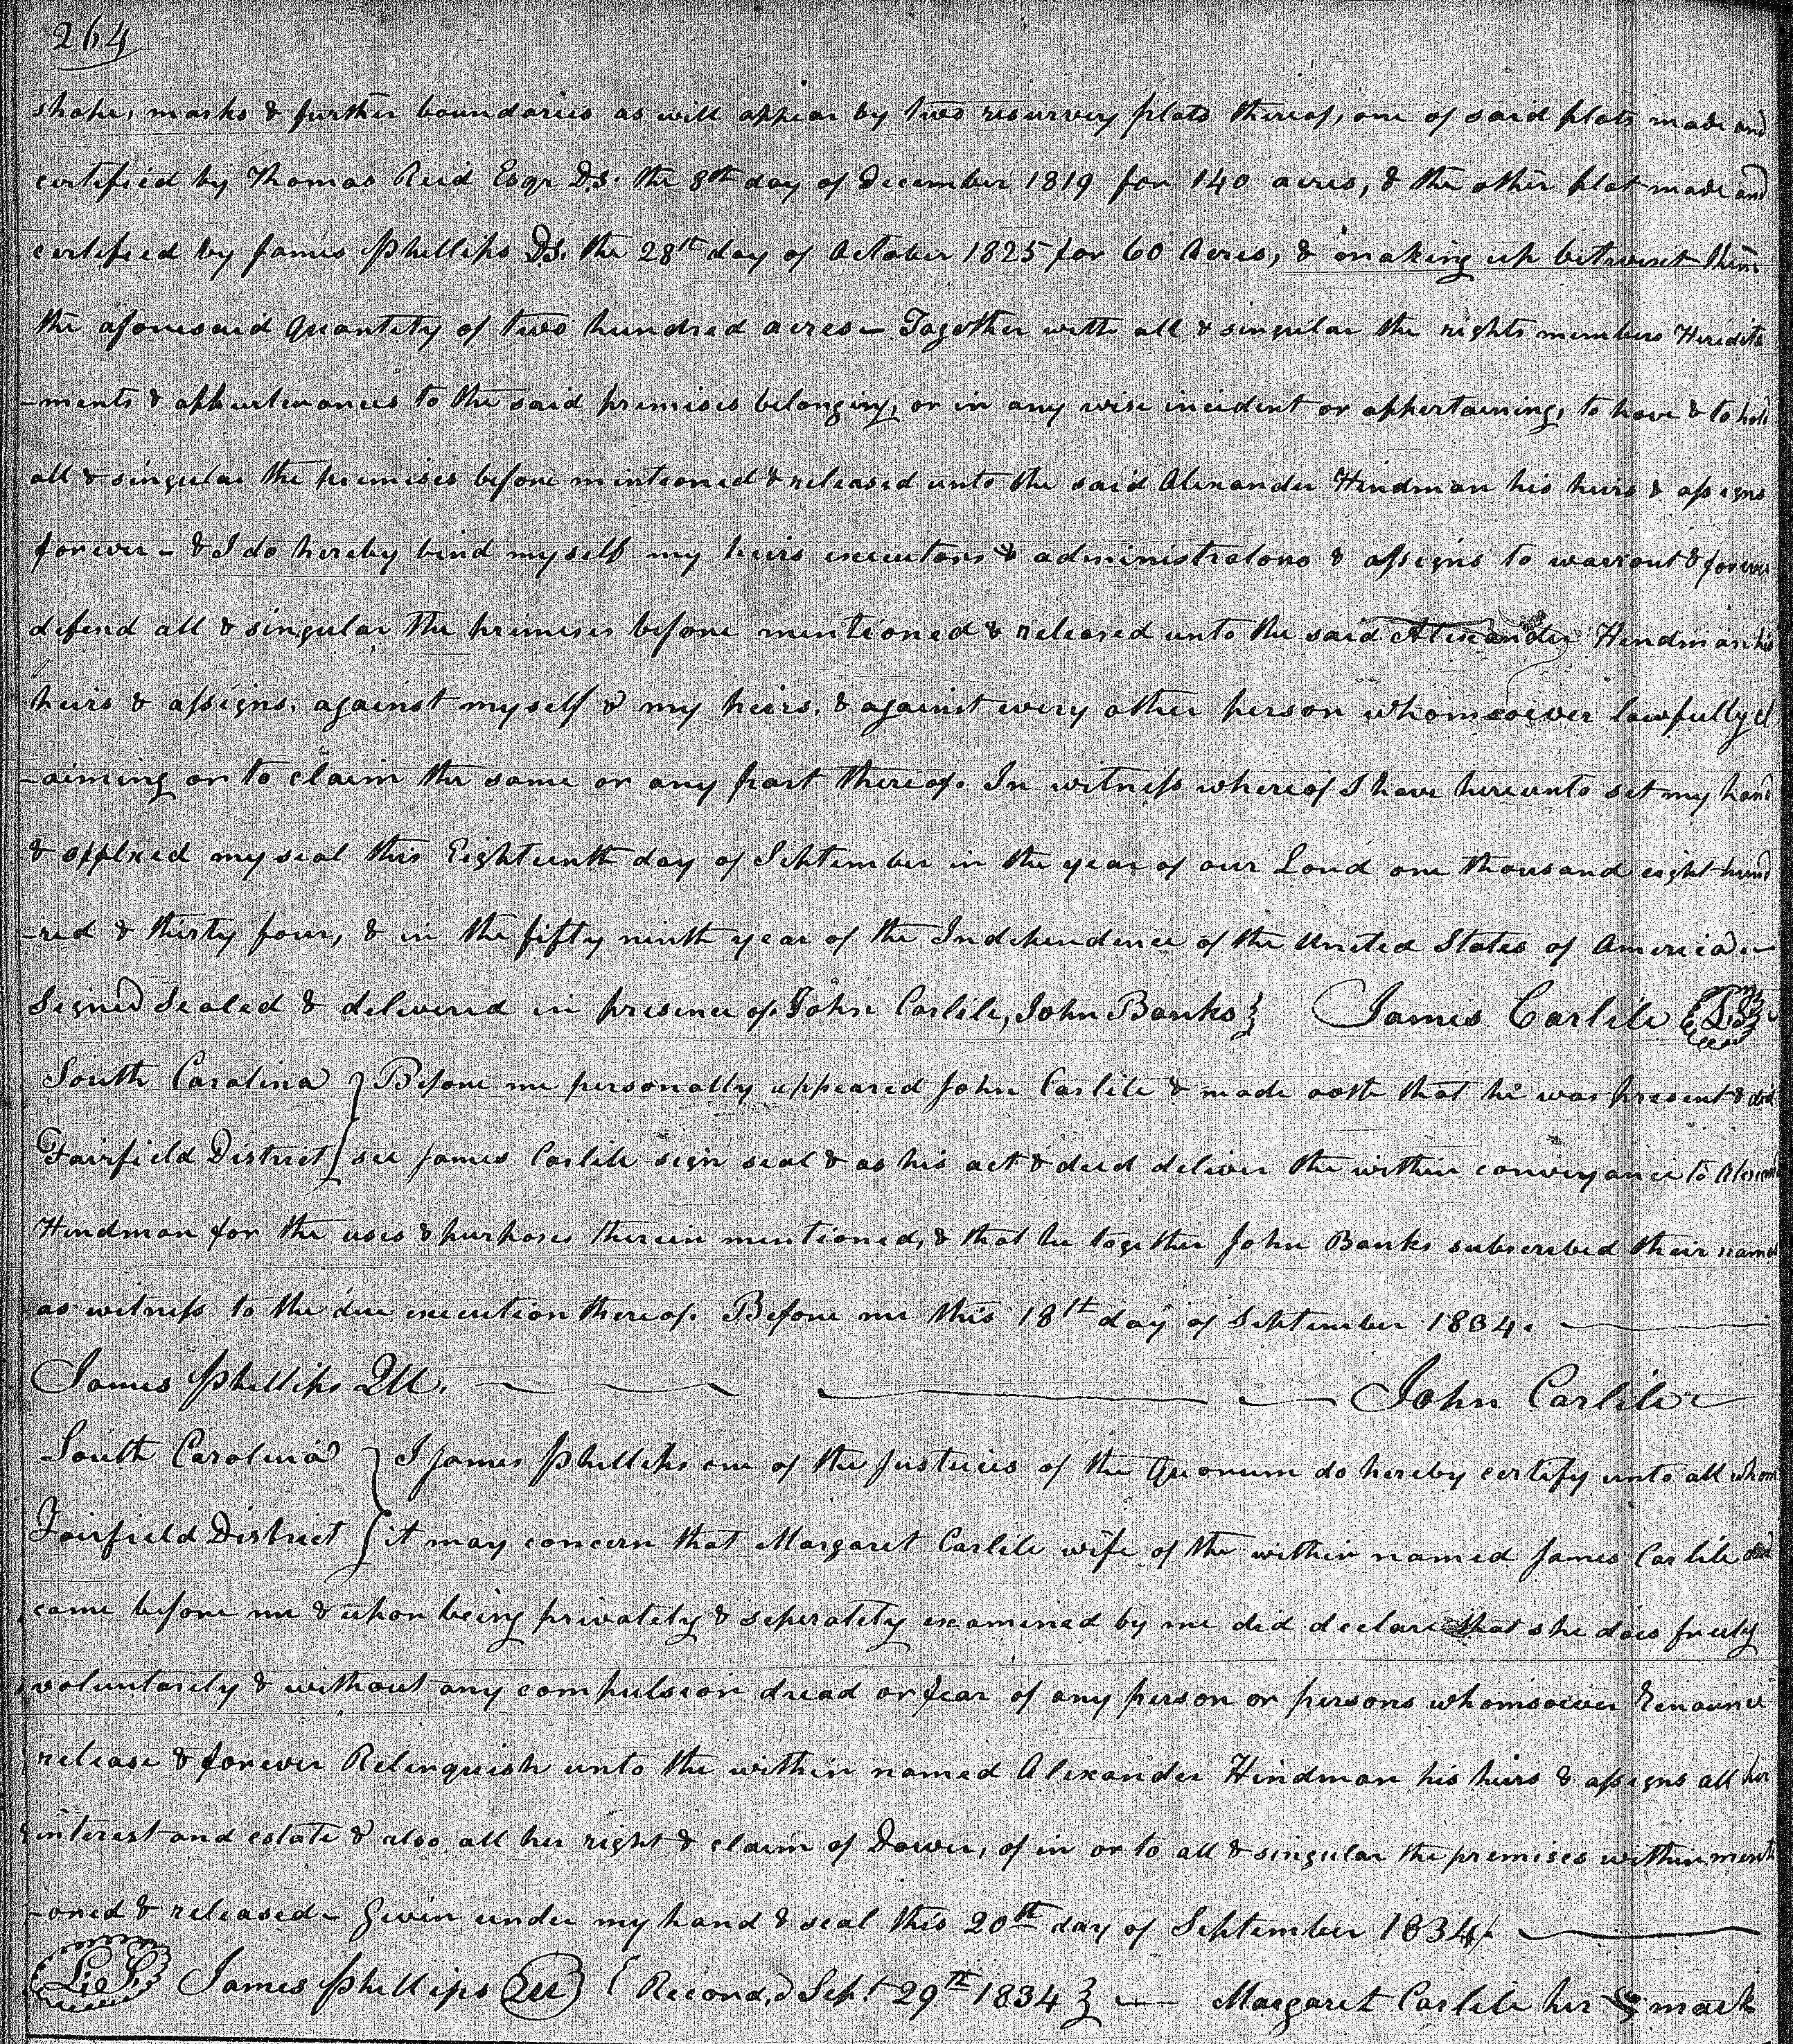 264
shape, marks & further boundaries as will appear by two resurvey plats thereof, one of said plats made and
certified by Thomas Reid Esqr D.S. the 8th day of December 1819 for 140 acres, & the other plat made and
certified by James Phillips D.S. the 28th day of October 1825 for 60 Acres, & making up betwixt them
the aforesaid Quantity of two hundred acres – Together with all & singular the rights members Heredita
-ments & appurtenances to the said premises belonging, or in any wise incident or appertaining, to have & to hold
all & singular the premises before mentioned & released unto the said Alexander Hindman his heirs & assigns
forever – & I do hereby bind myself my heirs executors & administrators & assigns to warrant & forever
defend all & singular the premises before mentioned & released unto the said Alexander Hindman his
heirs & assigns, against myself & my heirs, & against every other person whomsoever lawfully cl
-aiming or to claim the same or any part thereof. In witness whereof I have hereunto set my hand
& affixed my seal this Eighteenth day of September in the year of our Lord one thousand eight hund
-red & thirty four, & in the fifty ninth year of the Independence of the United States of America –
Signed Sealed & delivered in presence of John Carlile, John Banks } James Carlile L.S.
South Carolina } Before me personally appeared John Carlile & made oath that he was present & did
Fairfield District } see James Carlile sign seal & as his act & deed deliver the within conveyance to Alexand
Hindman for the uses & purposes therein mentioned, & that he together John Banks subscribed their names
as witness to the due execution thereof. Before me this 18th day of September 1834.
James Phillips QU. John Carlile
South Carolina } I James Phillips one of the Justices of the Quorum do hereby certify unto all whom
Fairfield District } it may concern that Margaret Carlile wife of the within named James Carlile did
came before me & upon being privately & seperately examined by me did declare that she does freely
voluntarily & without any compulsion dread or fear of any person or persons whomsoever Renounce
release & forever Relinquish unto the within named Alexander Hindman his heirs & assigns all her
interest and estate & also all her right & claim of Dower, of in or to all & singular the premises within menti
-oned & released – Given under my hand & seal this 20th day of September 1834
L.S. James Phillips QU } { Record,d Sept. 29th 1834 } Margaret Carlile her mark